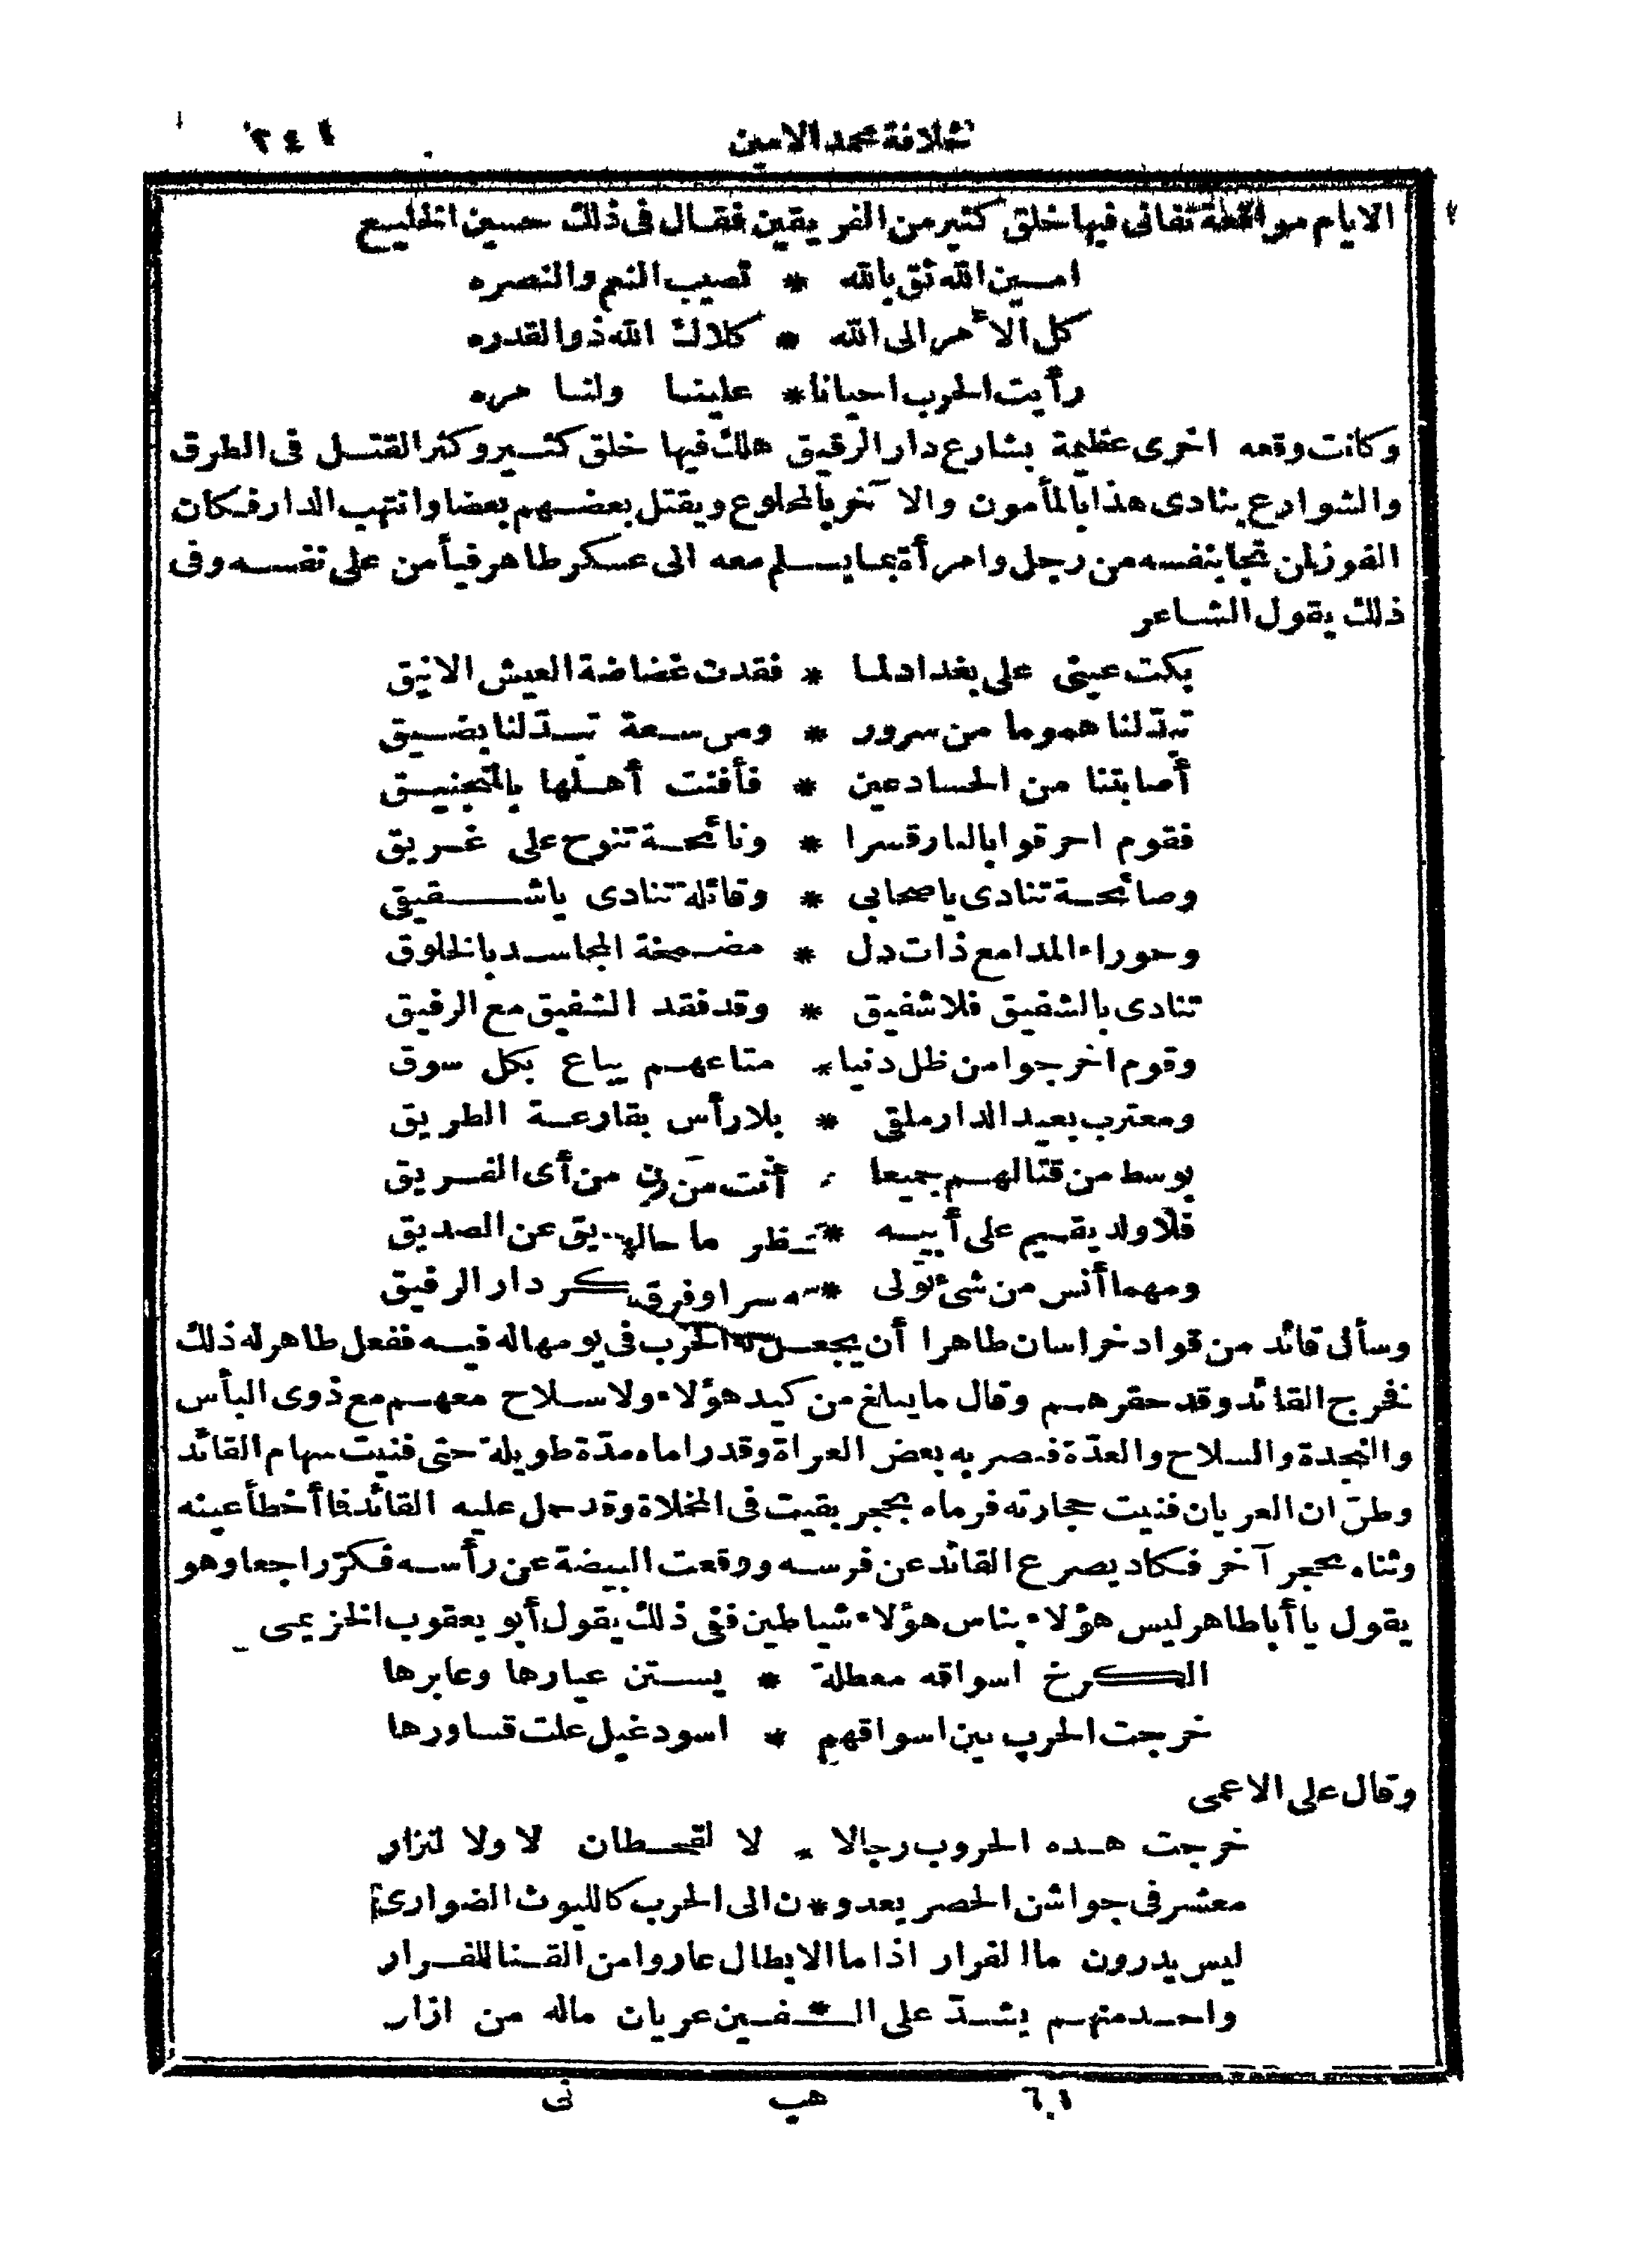 خلافة محمد الامين
٢٤١
الايام مواقعة تفانى فيها خلق كثير من الفريقين فقال فى ذلك حسين الخليع
امين الله ثق بالله * تصيب النم والنصره
كل الأمر الى الله * كلاك الله ذو القدره
رأيت الحرب احيانا * علينا ولنا مره
وكانت وقعه اخرى عظيمة بشارع دار الرقيق هلك فيها خلق كثير وكثر القتل فى الطرق
والشوارع ينادى هذا بالمأمون والآخر بالمخلوع ويقتل بعضهم بعضا وانتهب الدار فكان
الفوز لمن نجا بنفسه من رجل وامرأة بما يسلم معه الى عسكر طاهر فيأمن على نفسه وفى
ذلك يقول الشاعر
بكت عينى على بغداد لما * فقدت غضاضة العيش الانيق
تبدّلنا هموما من سرور * ومن سعة تبدّلنا بضيق
أصابتنا من الحساد عين * فأفنت أهلها بالمنجنيق
فقوم احرقوا بالنار قسرا * ونائحة تنوح على غريق
وصائحة تنادى ياصحابى * وقائلة تنادى ياشقيقى
وحوراء المدامع ذات دل * مضمخة المجاسد بالخلوق
تنادى بالشفيق فلا شفيق * وقد فقد الشفيق مع الرفيق
وقوم اخرجوا من ظل دنيا * متاعهم يباع بكل سوق
ومغترب بعيد الدار ملقى * بلا رأس بقارعة الطريق
بوسط من قتالهم جميعا من أى الفريق
فلا ولد يقيم على أبيه * عن الصديق
ومهما أنس من شئ تولى * دار الرقيق
وسأل قائد من قواد خراسان طاهرا أن يجعل له الحرب فى يومهاله فيه ففعل طاهر له ذلك
فخرج القائد وقد حقرهم وقال ما يبلغ من كيد هؤلاء ولا سلاح معهم مع ذوى البأس
والنجدة والسلاح والعدّة فبصر به بعض العراة وقد راماه مدّة طويلة حتى فنيت سهام القائد
وظنّ ان العريان فنيت حجارته فرماه بحجر بقيت فى المخلاة وقد حمل عليه القائد فما أخطأ عينه
وثناه بحجر آخر فكاد يصرع القائد عن فرسه ووقعت البيضة عن رأسه فكرّ راجعا وهو
يقول يا أبا طاهر ليس هؤلاء بناس هؤلاء شياطين ففى ذلك يقول أبو يعقوب الخزيمى
الكرخ اسواقه معطلة * يستن عيارها وعابرها
خرجت الحرب بين اسواقهم * اسود غيل علت قساورها
وقال على الاعمى
خرجت هذه الحروب رجالا * لا لقحطان لا ولا لنزار
معشر فى جواشن الحصر يعدو*ن الى الحرب كالليوث الضوارى
ليس يدرون ما الفرار اذا ما الابطال عاروا من القنا للفرار
واحد منهم يشدّ على الـ*ـفين عريان ماله من ازار
هب
نى